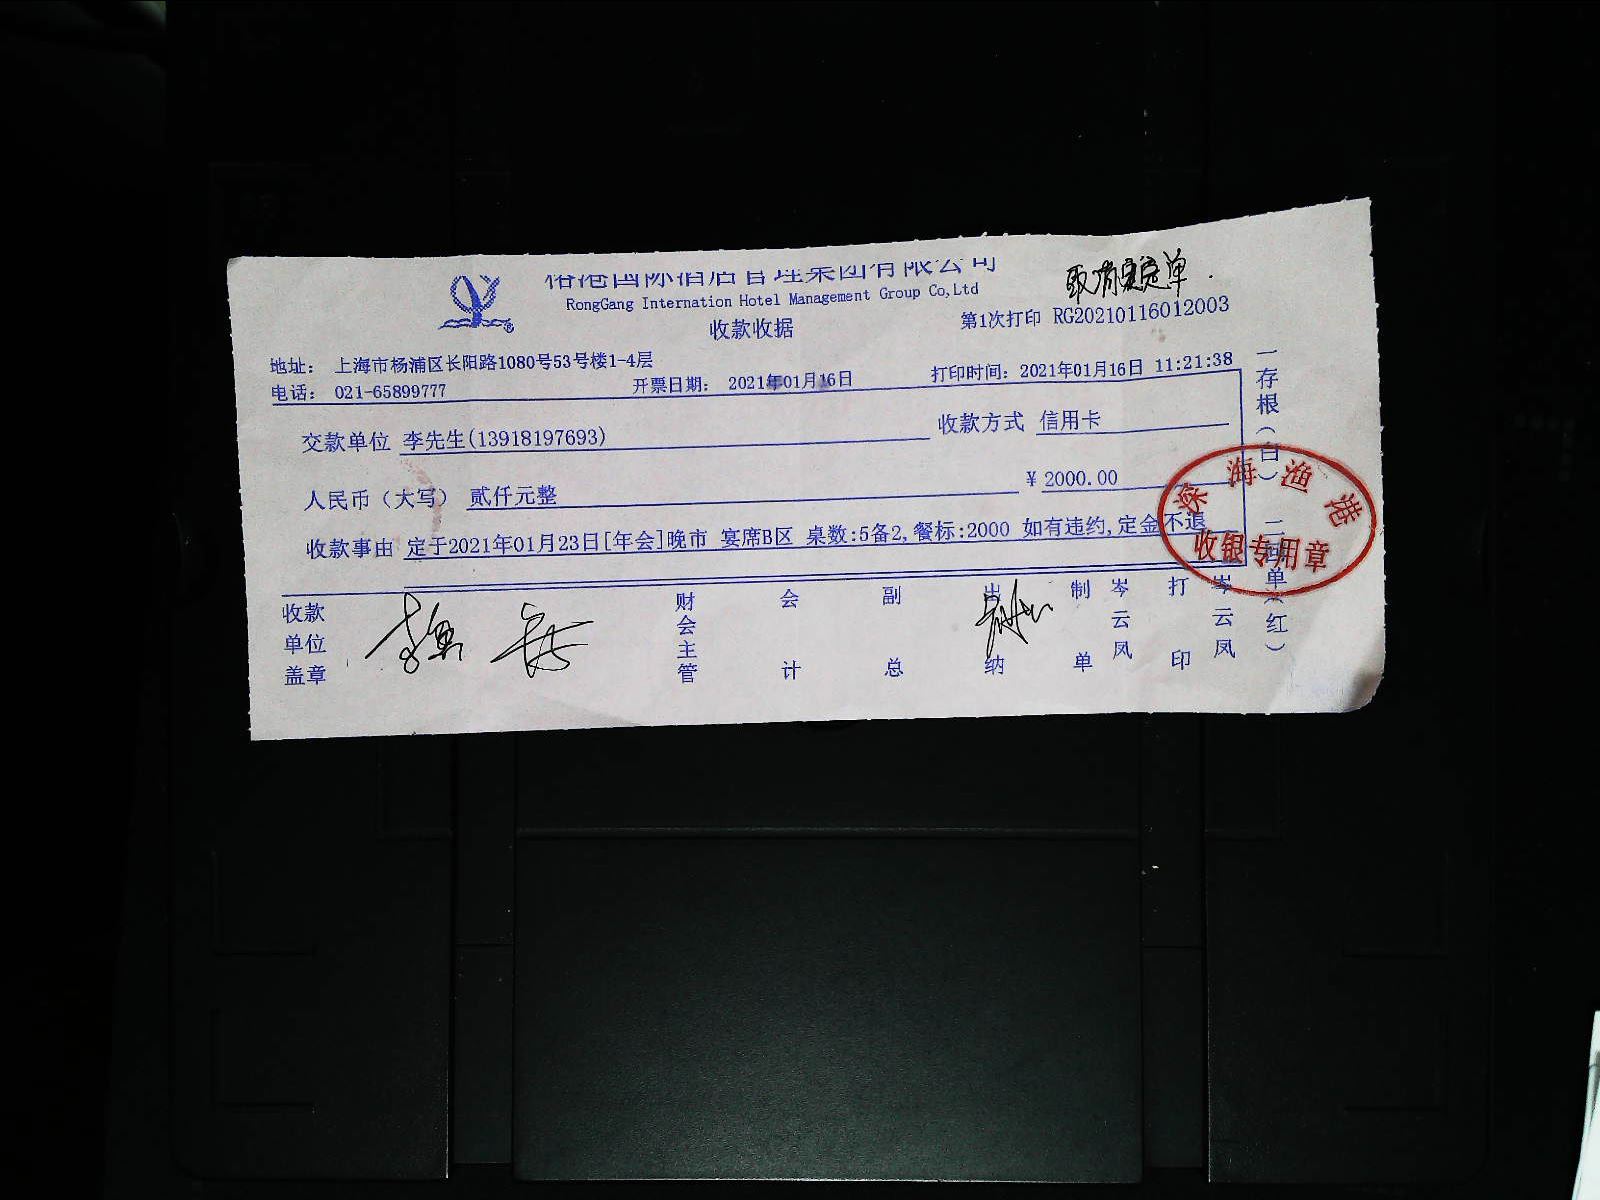 裕港国际酒店管理集团有限公司
RongGang Internation Hotel Management Group Co,Ltd
收款收据
第1次打印 RG20210116012003
地址: 上海市杨浦区长阳路1080号53号楼1-4层
电话: 021-65899777 开票日期: 2021年01月16日 打印时间: 2021年01月16日 11:21:38
交款单位 李先生(13918197693) 收款方式 信用卡
人民币(大写) 贰仟元整 ¥ 2000.00
收款事由 定于2021年01月23日[年会]晚市 宴席B区 桌数:5备2,餐标:2000 如有违约,定金不退
收款单位盖章 财会主管 会计 副总 出纳 制单 岑云凤 打印 岑云凤
一存根(白) 二回单(红)
深海渔港
收银专用章